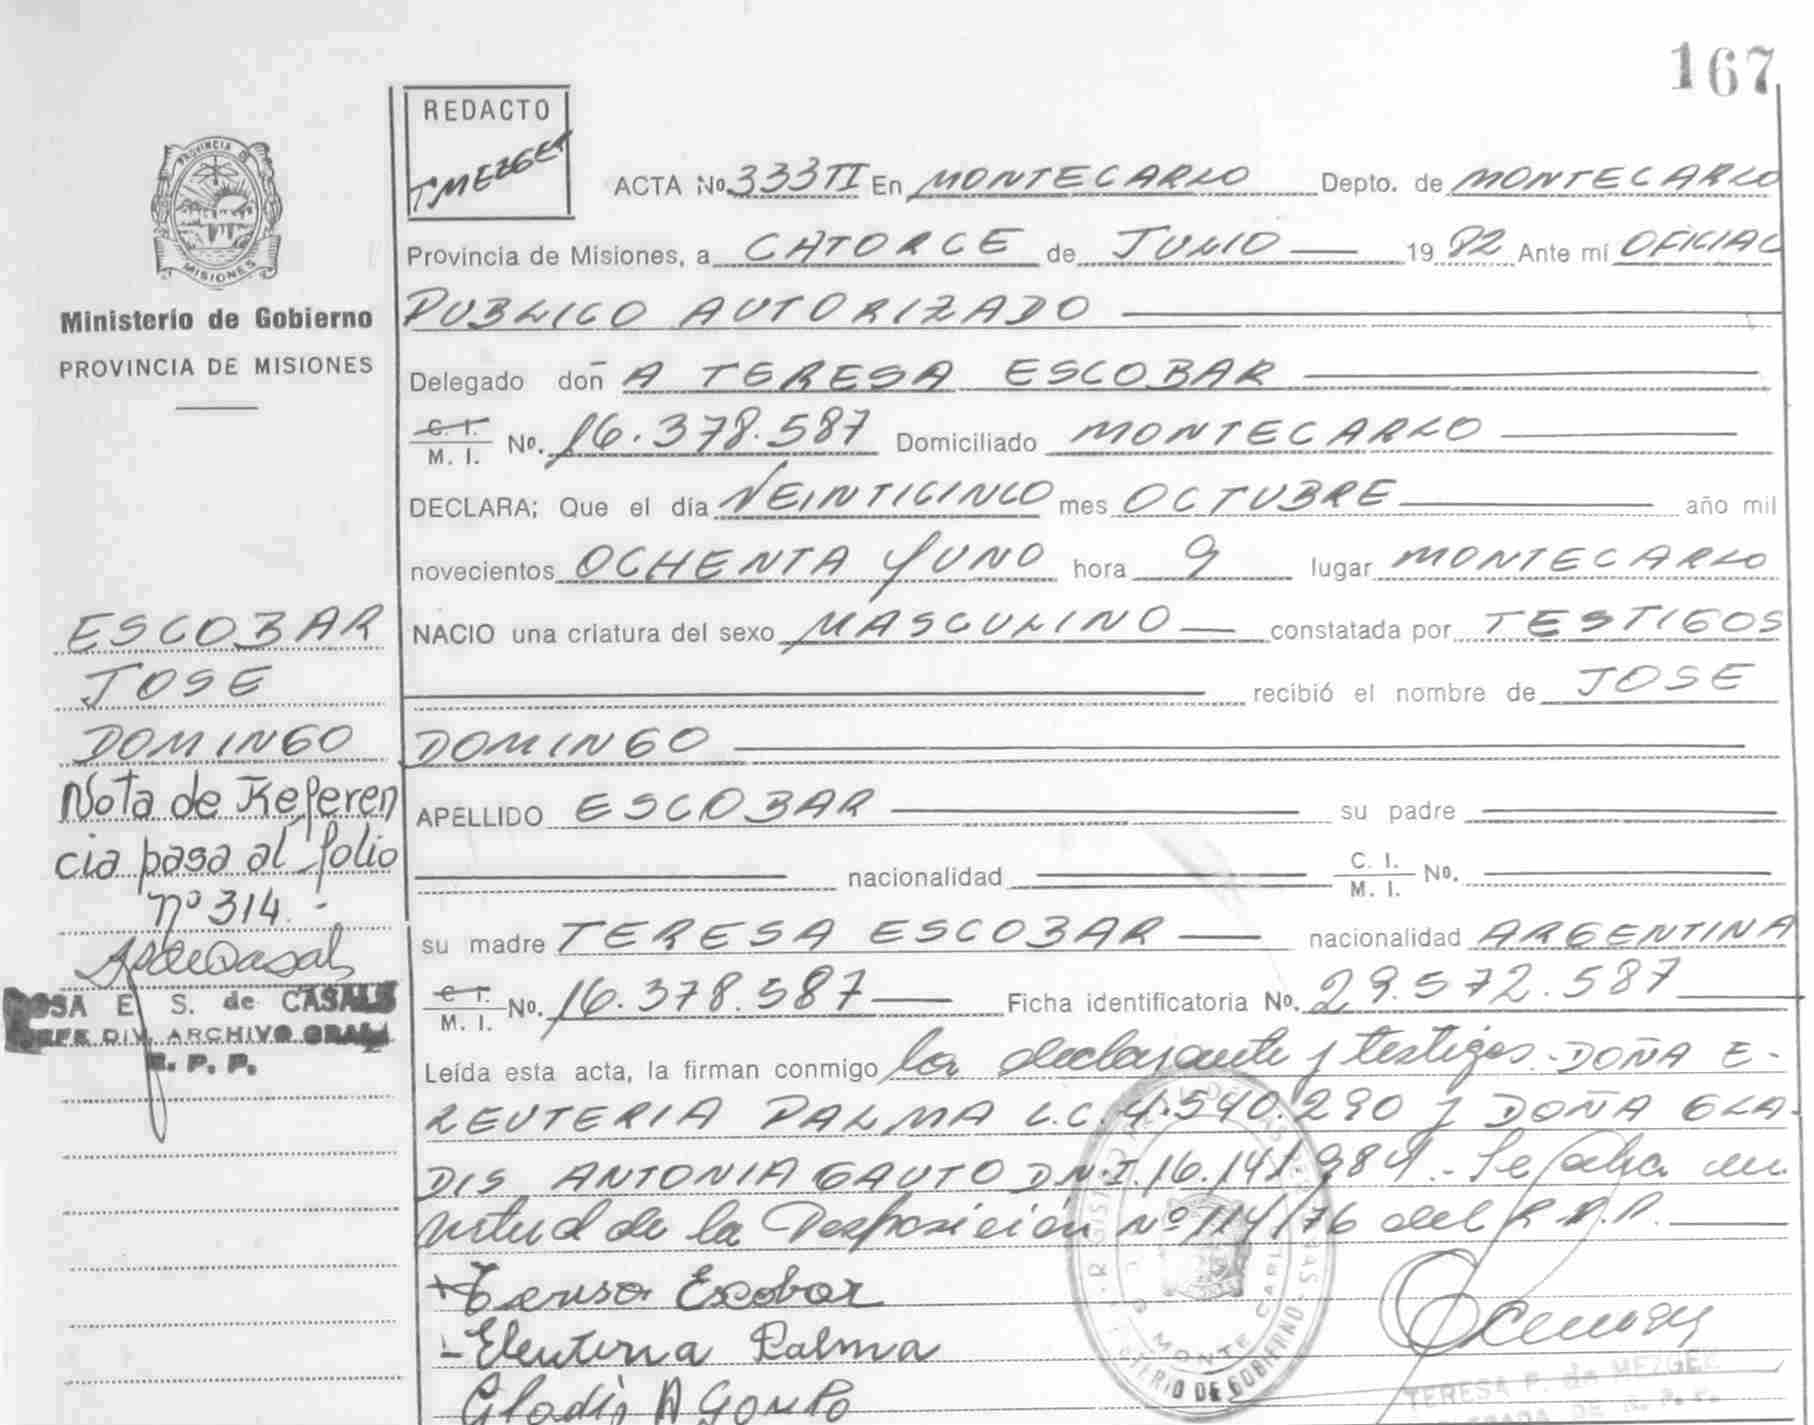 167
REDACTO
TMEZGER
PROVINCIA DE
MISIONES
Ministerio de Gobierno
PROVINCIA DE MISIONES
ACTA No. 333 TI En MONTECARLO Depto. de MONTECARLO
Provincia de Misiones, a CATORCE de JUNIO 19 82 Ante mí OFICIAL
PUBLICO AUTORIZADO
Delegado don A TERESA ESCOBAR
C. I. M. I. No. 16.378.587 Domiciliado MONTECARLO
DECLARA; Que el día VEINTICINCO mes OCTUBRE año mil
novecientos OCHENTA Y UNO hora 9 lugar MONTECARLO
NACIO una criatura del sexo MASCULINO constatada por TESTIGOS
recibió el nombre de JOSE
DOMINGO
APELLIDO ESCOBAR su padre
nacionalidad C. I. M. I. No.
su madre TERESA ESCOBAR nacionalidad ARGENTINA
C. I. M. I. No. 16.378.587 Ficha identificatoria No. 29.572.587
Leída esta acta, la firman conmigo la declarante y testigos. DOÑA E-
LEUTERIA PALMA L.C. 4.540.290 y DOÑA GLA-
DIS ANTONIA GAUTO D.N.I. 16.141.984. Se labra en
virtud de la Desposición Nº 114/76 del R.P.P.
Teresa Escobar
Eleuteria Palma
Gladis A Gauto
ESCOBAR
JOSE
DOMINGO
Nota de Referen
cia pasa al folio
nº 314.-
ROSA E. S. de CASALS
JEFE DIV. ARCHIVO GRAL.
R. P. P.
MONTE CARLO
MINISTERIO DE GOBIERNO
TERESA P. de MEZGER